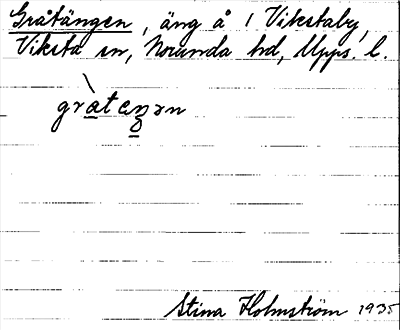 Gråtängen, äng å 1 Vikstaby,
Viksta sn, Norunda hd, Upps. l.
gràtεŋən
Stina Holmström 1935